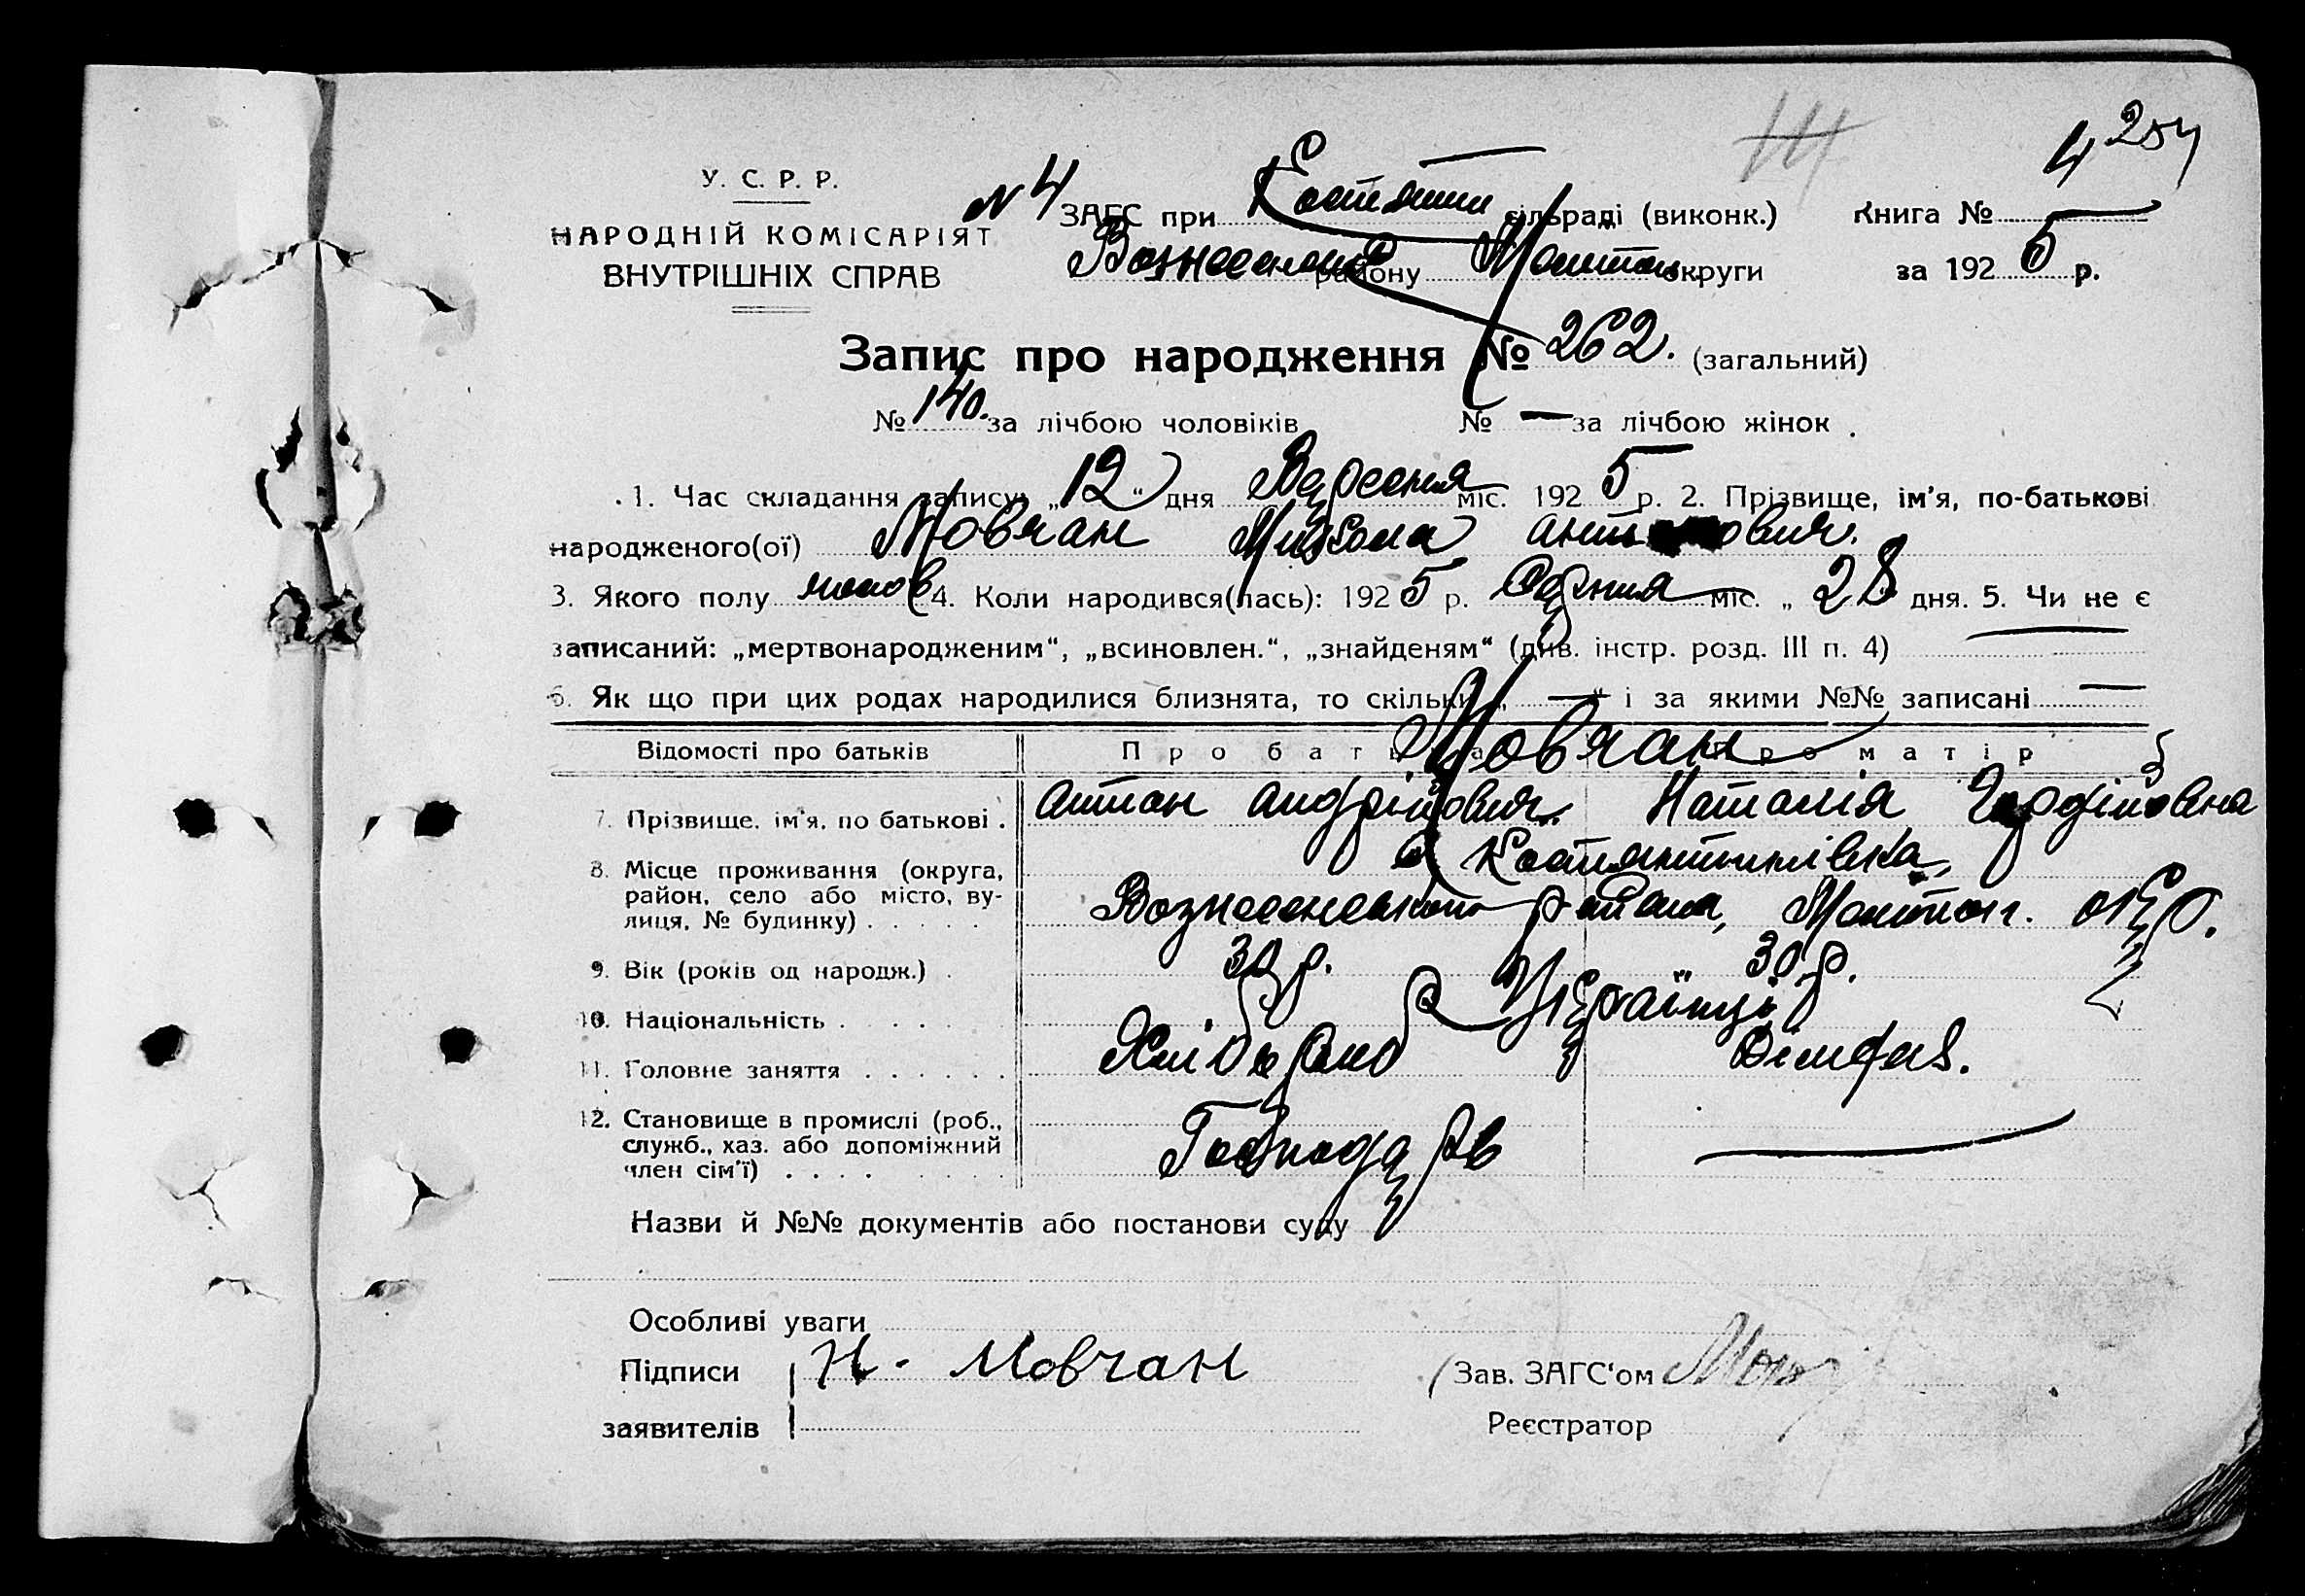 254
4
У. С. Р. Р.
№ 4 ЗАГС при Костянти сільраді (виконк.) Книга №
НАРОДНІЙ КОМІСАРІЯТ
ВНУТРІШНІХ СПРАВ
Вознесенськ району Мелітоп. округи за 1925 р.
Запис про народження № 262. (загальний)
№ 140. за лічбою чоловіків № — за лічбою жінок
1. Час складання запису: „12“ дня Вересня міс. 1925 р. 2. Прізвище, ім’я, по-батькові
народженого(ої) Мовчан Микола Антонович.
3. Якого полу чолов 4. Коли народився(лась): 1925 р. Серпня міс. „28 дня. 5. Чи не є
записаний: „мертвонародженим“, „всиновлен.“, „знайденям“ (див. інстр. розд. III п. 4) —
6. Як що при цих родах народилися близнята, то скільки „—“ і за якими №№ записані —
Відомості про батьків Про батька Про матір
Мовчан
7. Прізвище, ім’я, по батькові . Антон Андрійович Наталія Гордіївна
8. Місце проживання (округа, район, село або місто, вулиця, № будинку) . . . . . Костянтинівка,
Вознесенського району, Мелітоп. окр.
9. Вік (років од народж.) . 30 р. 30 р.
10. Національність . . . . Українці
11. Головне заняття . . . . . . Хлібороб
12. Становище в промислі (роб., служб., хаз. або допоміжний член сім’ї) . . . . Господарь —
Назви й №№ документів або постанови суду
Особливі уваги
Підписи Н. Мовчан Зав. ЗАГС‘ом
заявителів Реєстратор